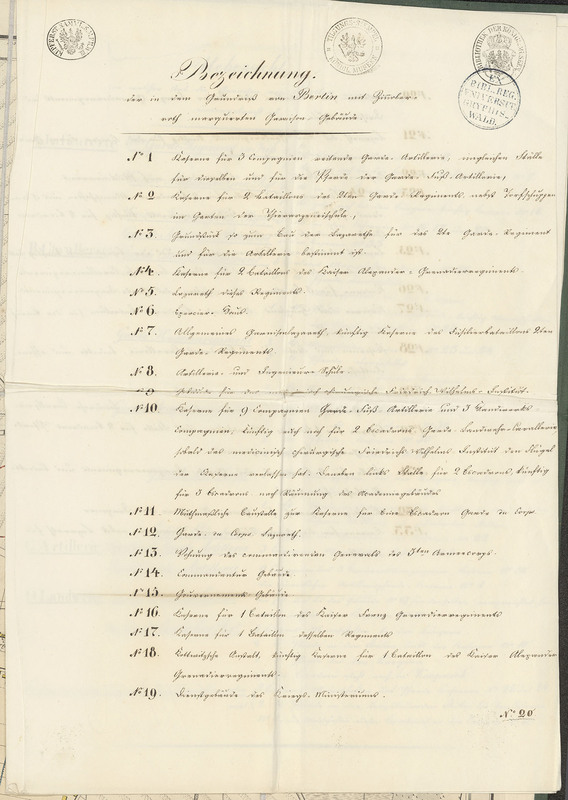 BIBL. REG.
UNIVERSIT.
GRYPHIS-
WALD.
Bezeichnung.
der in dem Grundriß von Berlin mit Zinnober-
roth marquirten Garnison-Gebäude.
No 1 Kaserne für 3 Compagnien reitende Garde-Artillerie, ingleichen Ställe
für dieselben und für die Pferde der Garde-Fuß-Artillerie,
No 2 Kaserne für 2 Bataillons des 2ten Garde Regiments, nebst Torfschuppen
im Garten der Thierarzeneischule,
No 3. Grundstück so zum Bau der Lazarethe für das 2te Garde-Regiment
und für die Artillerie bestimmt ist.
No 4. Kaserne für 2 Bataillons des Kaiser Alexander-Grenadierregiments.
No 5. Lazareth dieses Regiments.
No 6. Exercier-Haus.
No 7. Allgemeines Garnisonlazareth, künftig Kaserne des Füsilierbataillons 2ten
Garde-Regiments.
No 8. Artillerie- und Ingenieur-Schule
No 9. Gebäude für das medicinisch chirurgische Friedrich Wilhelms-Institut.
No 10. Kaserne für 9 Compagnien Garde-Fuß-Artillerie und 3 Handwerks
Compagnien, künftig auch noch für 2 Escadrons Garde-Landwehr-Cavallerie
sobald das medicinisch chirurgische Friedrich Wilhelms Institut den Flügel
der Kaserne verlassen hat. Daneben links Ställe für 2 Escadrons, künftig
für 3 Escadrons nach Räumung des Academiegebäudes
No 11. Muthmaßliche Baustelle zur Kaserne für eine Escadron Garde du Corps.
No 12. Garde-du Corps Lazareth.
No 13. Wohnung des commandirenden Generals des 3ten Armeecorps.
No 14. Commandantur Gebäude
No 15. Gouvernements Gebäude
No 16. Kaserne für 1 Bataillon des Kaiser Franz Grenadierregiments
No 17. Kaserne für 1 Bataillon desselben Regiments
No 18. Anstalt, künftig Kaserne für 1 Bataillon des Kaiser Alexander
Grenadierregiments.
No 19. Dienstgebäude des Kriegs-Ministeriums.
No 20